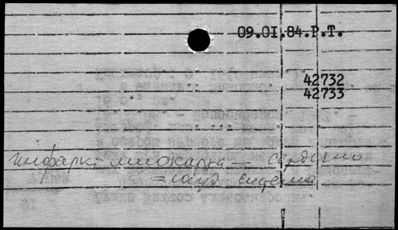 09.01.84.P.T.
42732
42733
инфаркт миокарда — сердечно
= сосуд система